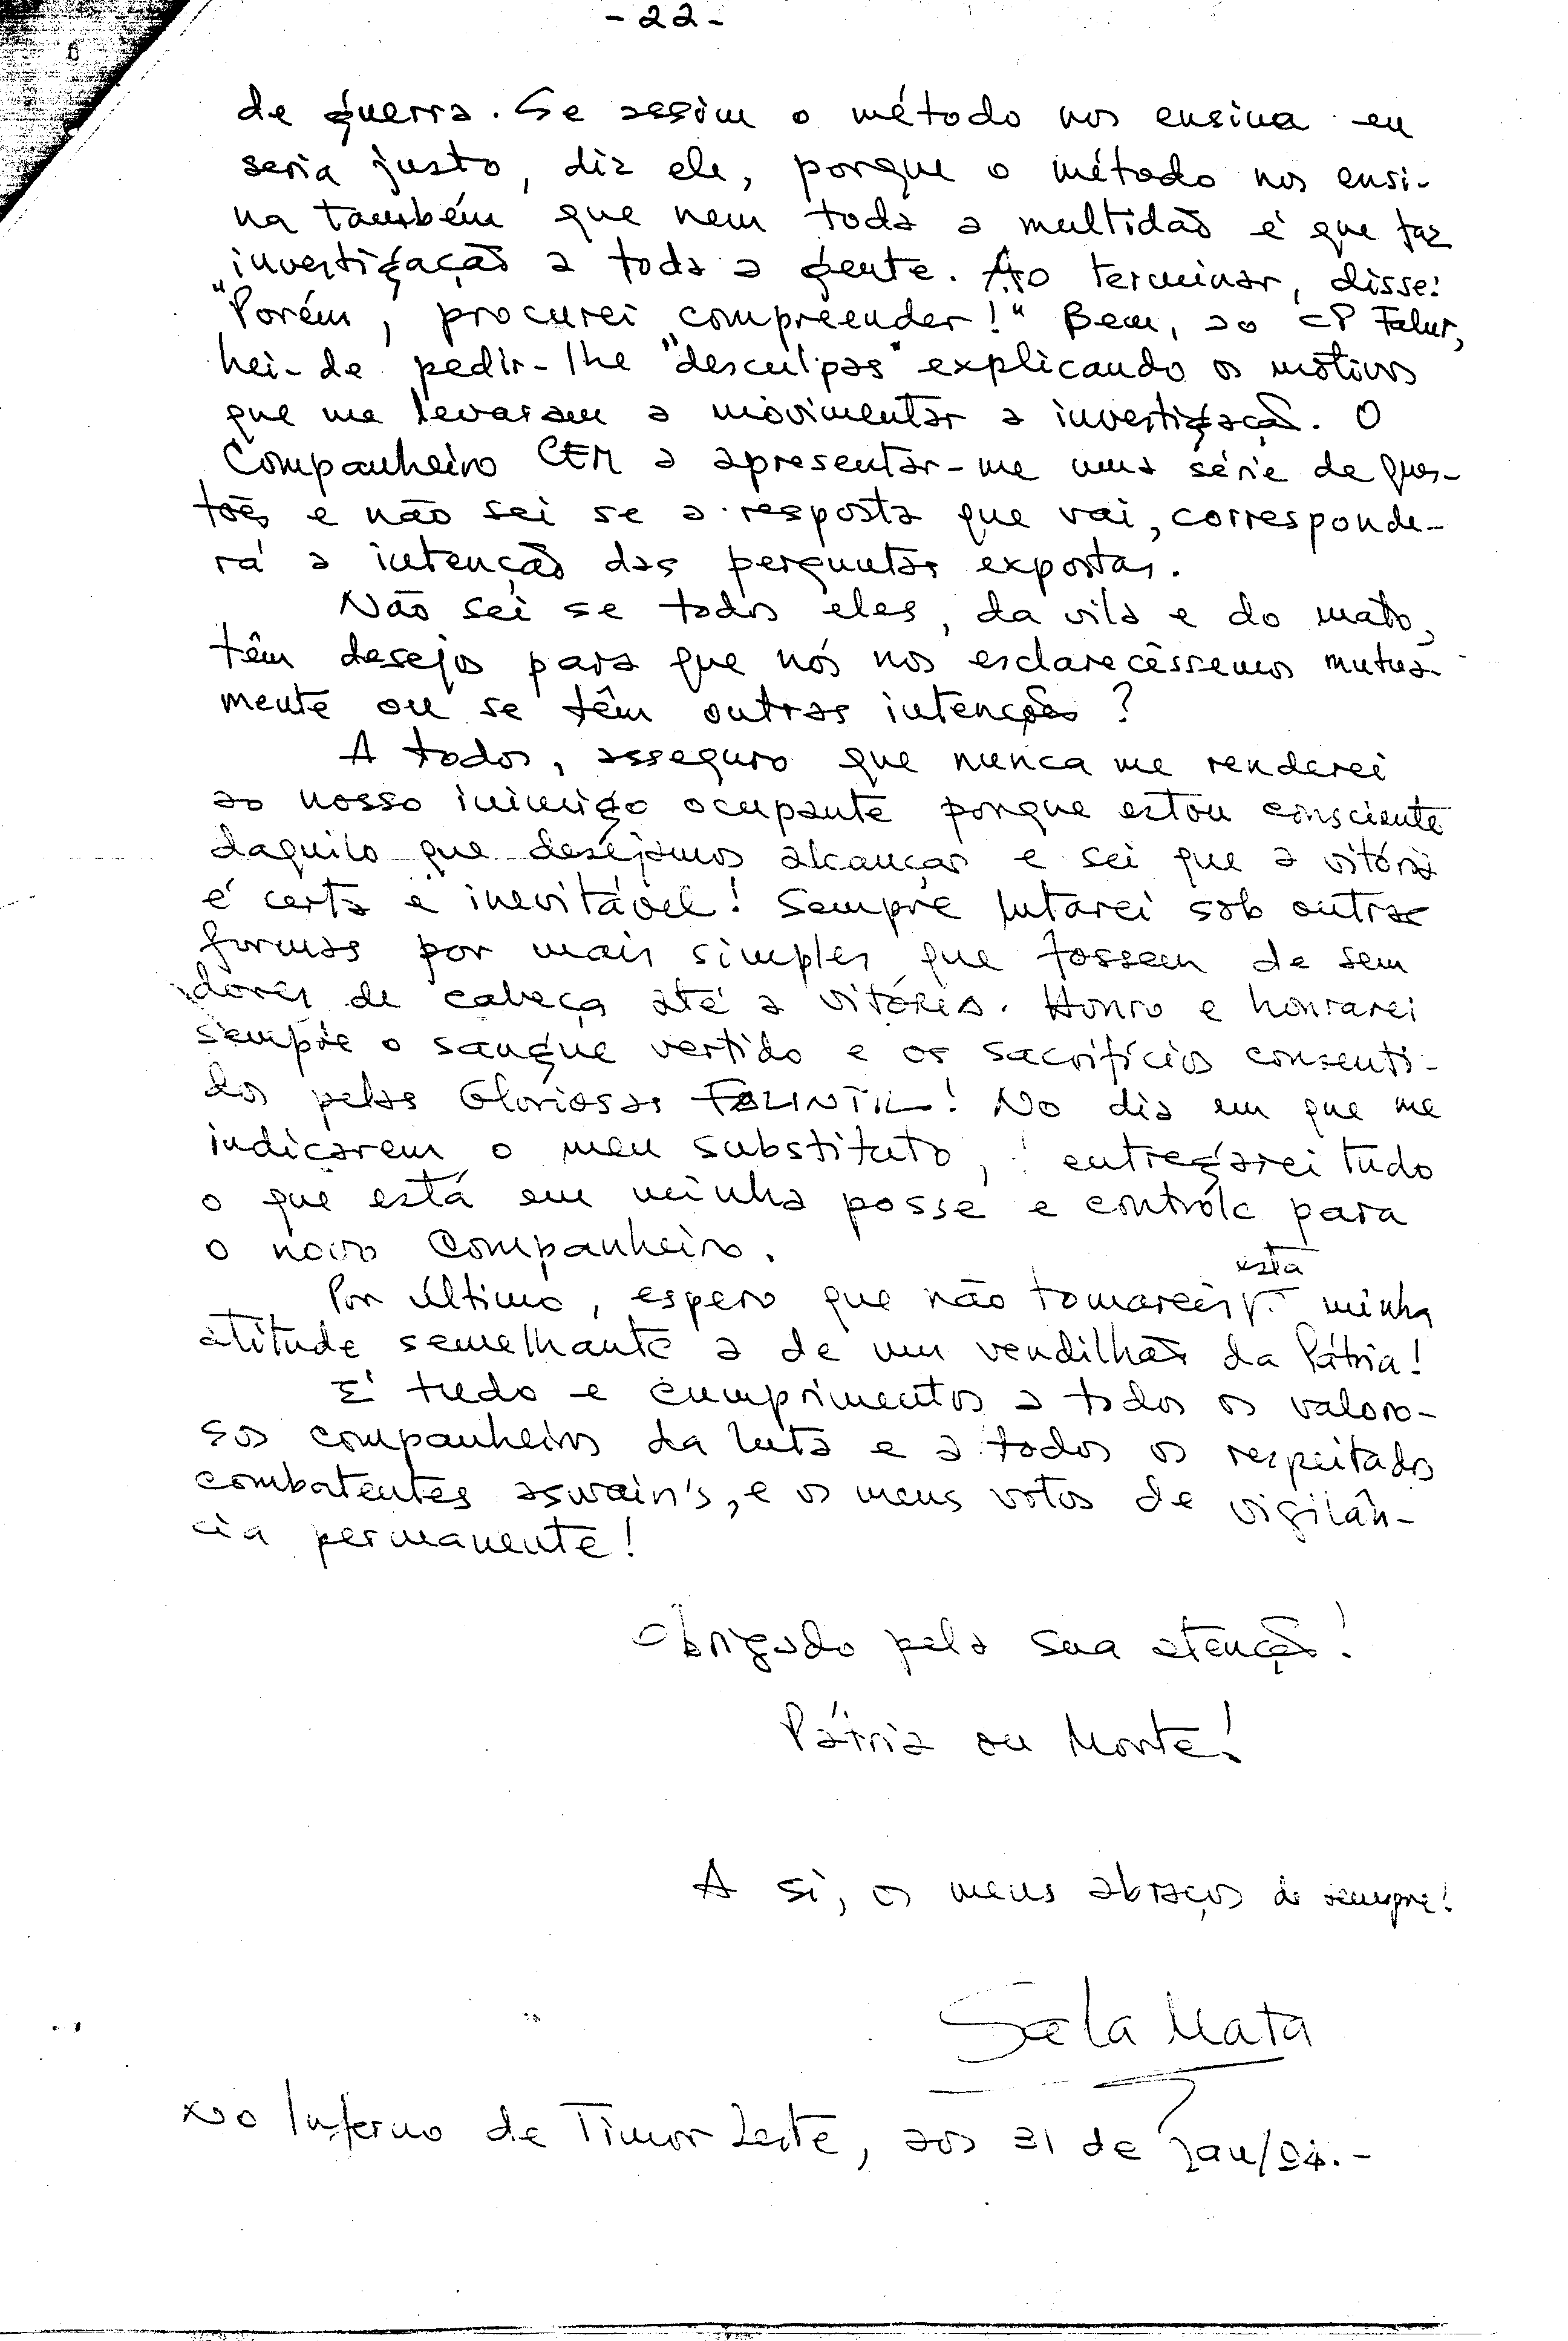 - 22 -
de guerra. Se assim o método nos ensina eu
seria justo, diz ele, porque o método nos ensi-
na também que nem toda a multidão é que faz
investigação a toda a gente. Ao terminar, disse:
"Porém, procurei compreender!" Bem, ao CP Falur,
hei-de pedir-lhe "desculpas" explicando os motivos
que me levaram a movimentar a investigação. O
Companheiro CEM a apresentar-me uma série de ques-
tões e não sei se a resposta que vai, corresponde-
rá a intenção das perguntas expostas.
Não sei se todos eles, da vila e do mato,
têm desejos para que nós nos esclarecêssemos mutua-
mente ou se têm outras intenções?
A todos, asseguro que nunca me renderei
ao nosso inimigo ocupante porque estou consciente
daquilo que desejamos alcançar e sei que a vitória
é certa e inevitável! Sempre lutarei sob outras
formas por mais simples que fossem de sem
dores de cabeça até a vitória. Honro e honrarei
sempre o sangue vertido e os sacrifícios consenti-
dos pelas Gloriosas FALINTIL! No dia em que me
indicarem o meu substituto, entregarei tudo
o que está em minha posse e contrôle para
o novo Companheiro.
esta
Por último, espero que não tomareis minha
atitude semelhante a de um vendilhão da Pátria!
É tudo e cumprimentos a todos os valoro-
sos companheiros da luta e a todos os respeitados
combatentes aswain's, e os meus votos de vigilân-
cia permanente!
Obrigado pela sua atenção!
Pátria ou Morte!
A si, os meus abraços de sempre!
Sala Mata
No Inferno de Timor Leste, aos 31 de Jan/94.-